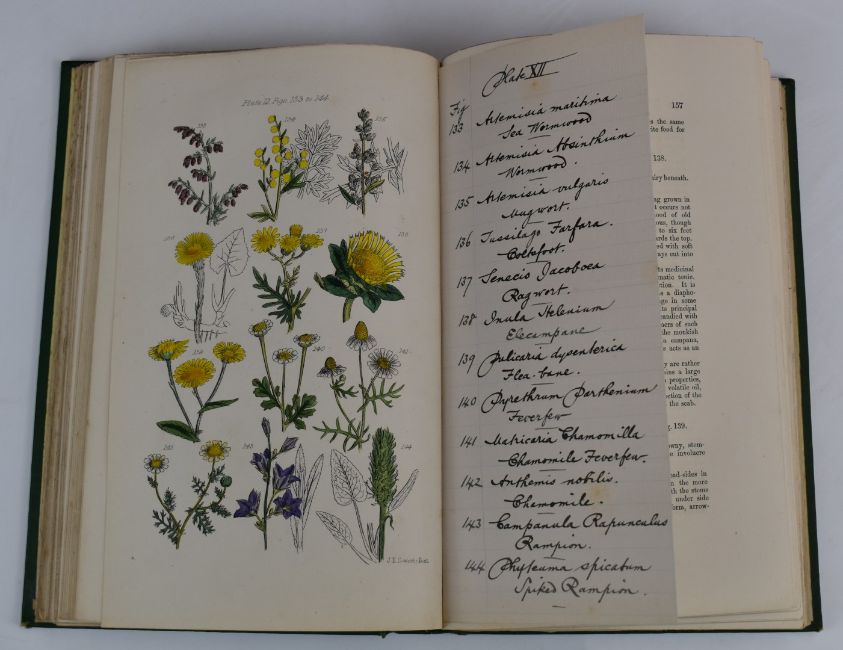 Plate 12. Figs. 133 to 144.
133
134
135
136
137
138
139
140
141
142
143
144
J. E. Sowerby
Plate XII
Fig
133 Artemisia maritima
Sea Wormwood
134 Artemisia Absinthium
Wormwood.
135 Artemisia vulgaris
Mugwort.
136 Tussilago Farfara.
Coltsfoot.
137 Senecio Jacoboea
Ragwort.
138 Inula Helenium
Elecampane
139 Pulicaria dysenterica
Flea-bane.
140 Pyrethrum Parthenium
Feverfew
141 Matricaria Chamomilla
Chamomile Feverfew.
142 Anthemis nobilis.
Chamomile.
143 Campanula Rapunculus
Rampion.
144 Phyteuma spicatum
Spiked Rampion.
157
the same
food for
138.
beneath.
grown in
occurs not
of old
though
to six feet
the top.
with soft
out into
medicinal
tonic.
It is
a
in some
principal
with
of such
the monkish
campana,
acts as an
are rather
a large
properties,
volatile oil,
of the
the scab.
139.
stem-
involucre
in
the more
the stems
under side
arrow-